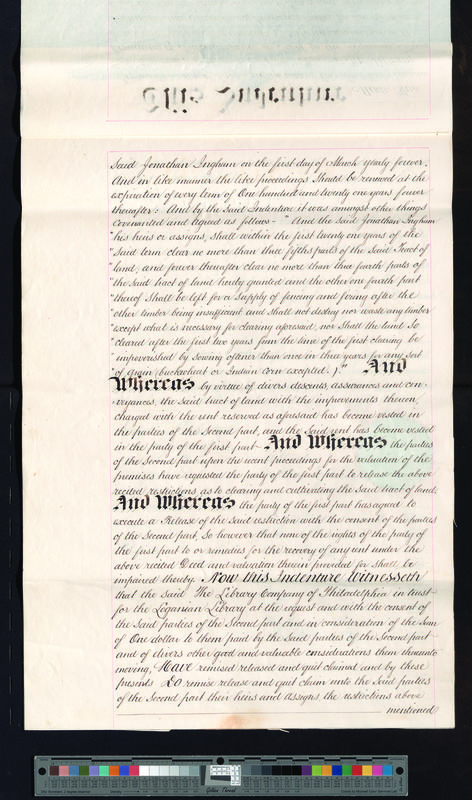 This Indenture
Said Jonathan Ingham on the first day of March yearly forever.
And in like manner the like proceedings Should be renewed at the
expiration of every term of One hundred and twenty one years forever
thereafter: And by the Said Indenture it was amongst other things
Covenanted and Agreed as follows - " And the said Jonathan Ingham
"his heirs or assigns, shall within the first twenty one years of the
"Said term clear no more than three fifths parts of the Said Tract of
"land, and forever thereafter clear no more than three fourth parts of
"the Said tract of land hereby granted and the other one fourth part
"thereof Shall be left for a Supply of fencing and firing after the
"other timber being insufficient and shall not destroy nor waste any timber
"except what is necessary for clearing aforesaid, nor Shall the land So
"cleared after the first two years from the time of the first clearing be
"impoverished by Sowing oftner than once in three years for any Sort
"of Grain (buckwheat or Indian Corn excepted.)" And
Whereas by virtue of divers descents, assurances and con-
-veyances, the Said tract of land with the improvements thereon,
charged with the rent reserved as aforesaid has become vested in
the parties of the Second part, and the Said rent has become vested
in the party of the first part And Whereas the parties
of the Second part upon the recent proceedings for the valuation of the
premises have requested the party of the first part to release the above
recited restrictions as to clearing and cultivating the Said tract of land.
And Whereas the party of the first part has agreed to
execute a Release of the said restriction with the consent of the parties
of the Second part, So however that none of the rights of the party of
the first part to or remedies for the recovery of any rent under the
above recited Deed and valuation therein provided for shall be
impaired thereby. Now this Indenture Witnesseth
that the said The Library Company of Philadelphia in trust
for the Loganian Library at the request and with the consent of
the Said parties of the Second part and in consideration of the Sum
of One dollar to them paid by the Said parties of the Second part
and of divers other good and valuable considerations them thereunto
moving, Have remised released and quit claimed and by these
presents Do remise release and quit claim unto the Said parties
of the Second part their heirs and assigns, the restrictions above
mentioned